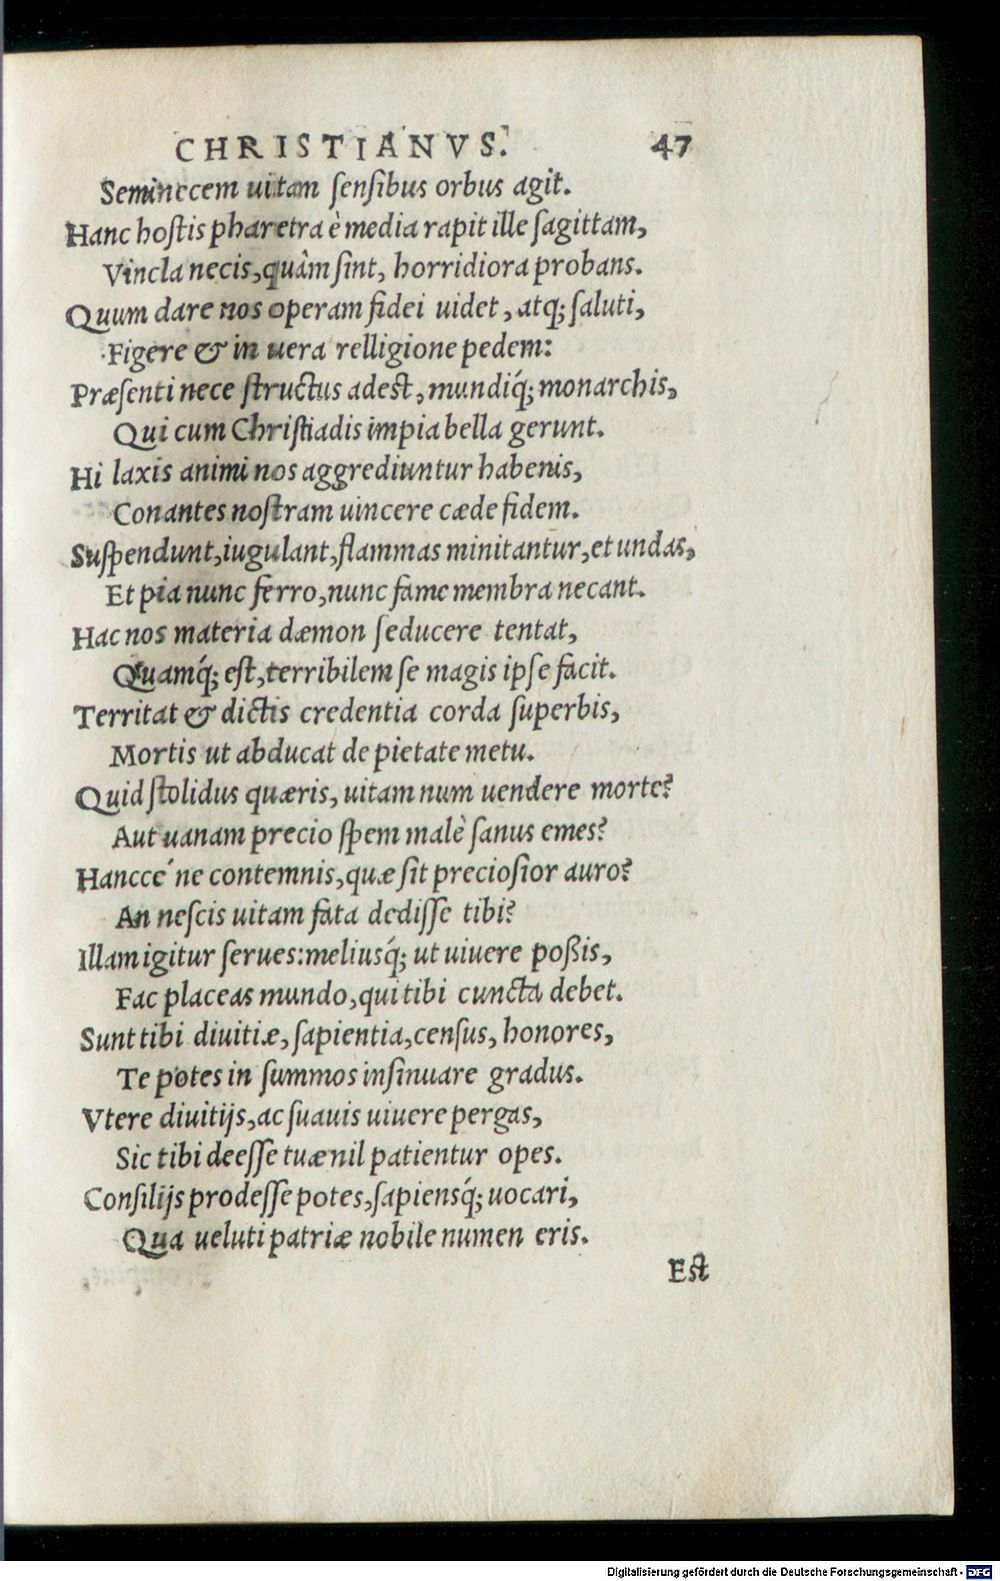 CHRISTIANVS. 47
Seminecem uitam ſenſibus orbus agit.
Hanc hoſtis pharetra è media rapit ille ſagittam,
Vincla necis, quàm ſint, horridiora probans.
Quum dare nos operam fidei uidet, atq; ſaluti,
Figere & in uera relligione pedem:
Præſenti nece ſtructus adeſt, mundiq́; monarchis,
Qui cum Chriſtiadis impia bella gerunt.
Hi laxis animi nos aggrediuntur habenis,
Conantes noſtram uincere cæde fidem.
Suſpendunt, iugulant, flammas minitantur, et undas,
Et pia nunc ferro, nunc fame membra necant.
Hac nos materia dæmon ſeducere tentat,
Quamq́; eſt, terribilem ſe magis ipſe facit.
Territat & dictis credentia corda ſuperbis,
Mortis ut abducat de pietate metu.
Quid ſtolidus quæris, uitam num uendere morte?
Aut uanam precio ſpem malè ſanus emes?
Hanccé ne contemnis, quæ ſit precioſior auro?
An neſcis uitam fata dediſſe tibi?
Illam igitur ſerues: meliusq́; ut uiuere poßis,
Fac placeas mundo, qui tibi cuncta debet.
Sunt tibi diuitiæ, ſapientia, cenſus, honores,
Te potes in ſummos inſinuare gradus.
Vtere diuitijs, ac ſuauis uiuere pergas,
Sic tibi deeſſe tuæ nil patientur opes.
Conſilijs prodeſſe potes, ſapiensq́; uocari,
Qua ueluti patriæ nobile numen eris.
Eſt
Digitalisierung gefördert durch die Deutsche Forschungsgemeinschaft - DFG